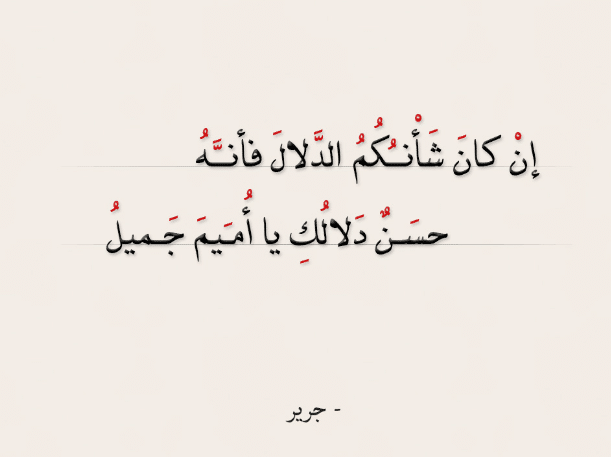 إنْ كانَ شَأْنـُكُمُ الدَّلالَ فأنـَّـهُ
حسَـنٌ دَلالُكِ يا أُمـَيمَ جَـميلُ
- جرير